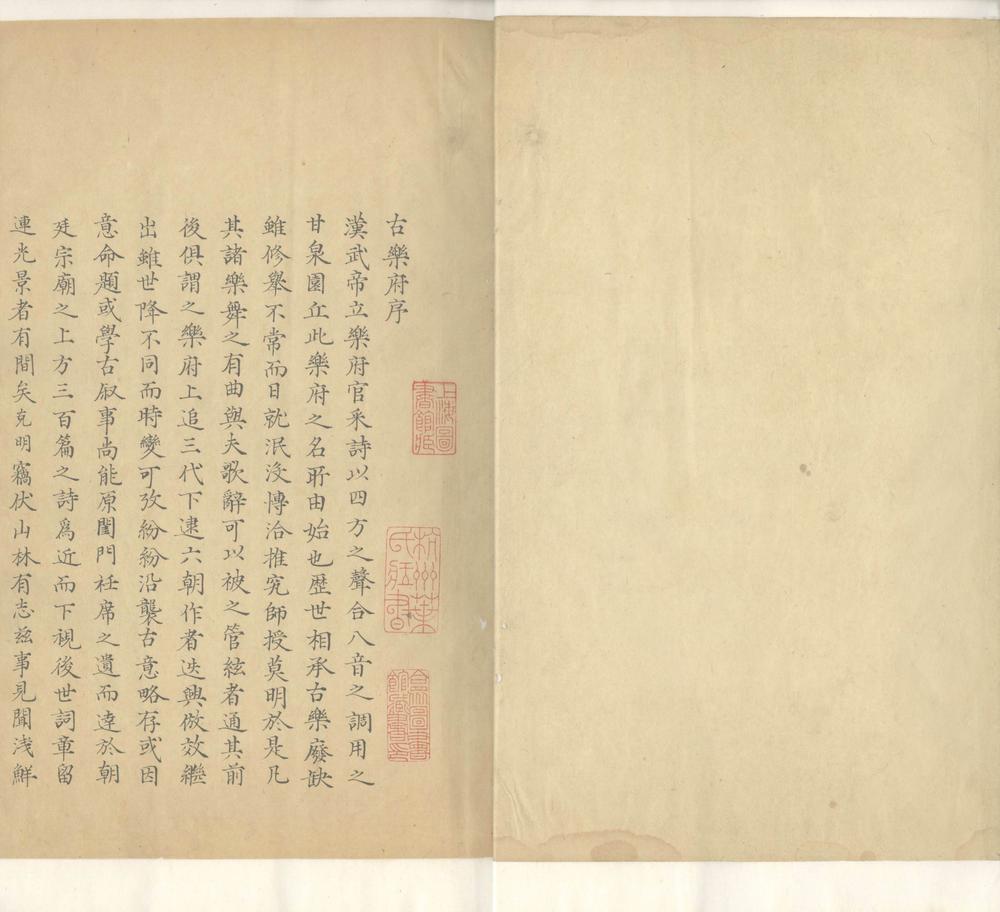 古樂府序
漢武帝立樂府官采詩以四方之聲合八音之調用之
甘泉園丘此樂府之名所由始也歷世相承古樂廢缺
雖修舉不常而日就泯没慱洽推究師授莫明於是凡
其諸樂舞之有曲與夫歌辭可以被之管絃者通其前
後俱謂之樂府上追三代下逮六朝作者迭興倣效繼
出雖世降不同而時變可攷紛紛沿襲古意略存或因
意命題或學古叙事尚能原閨門袵席之遺而達於朝
廷宗廟之上方三百篇之詩爲近而下視後世詞章留
連光景者有間矣克明竊伏山林有志玆事見聞淺鮮
上海圖書館藏
杭州葉氏藏書
合衆圖書館藏書印